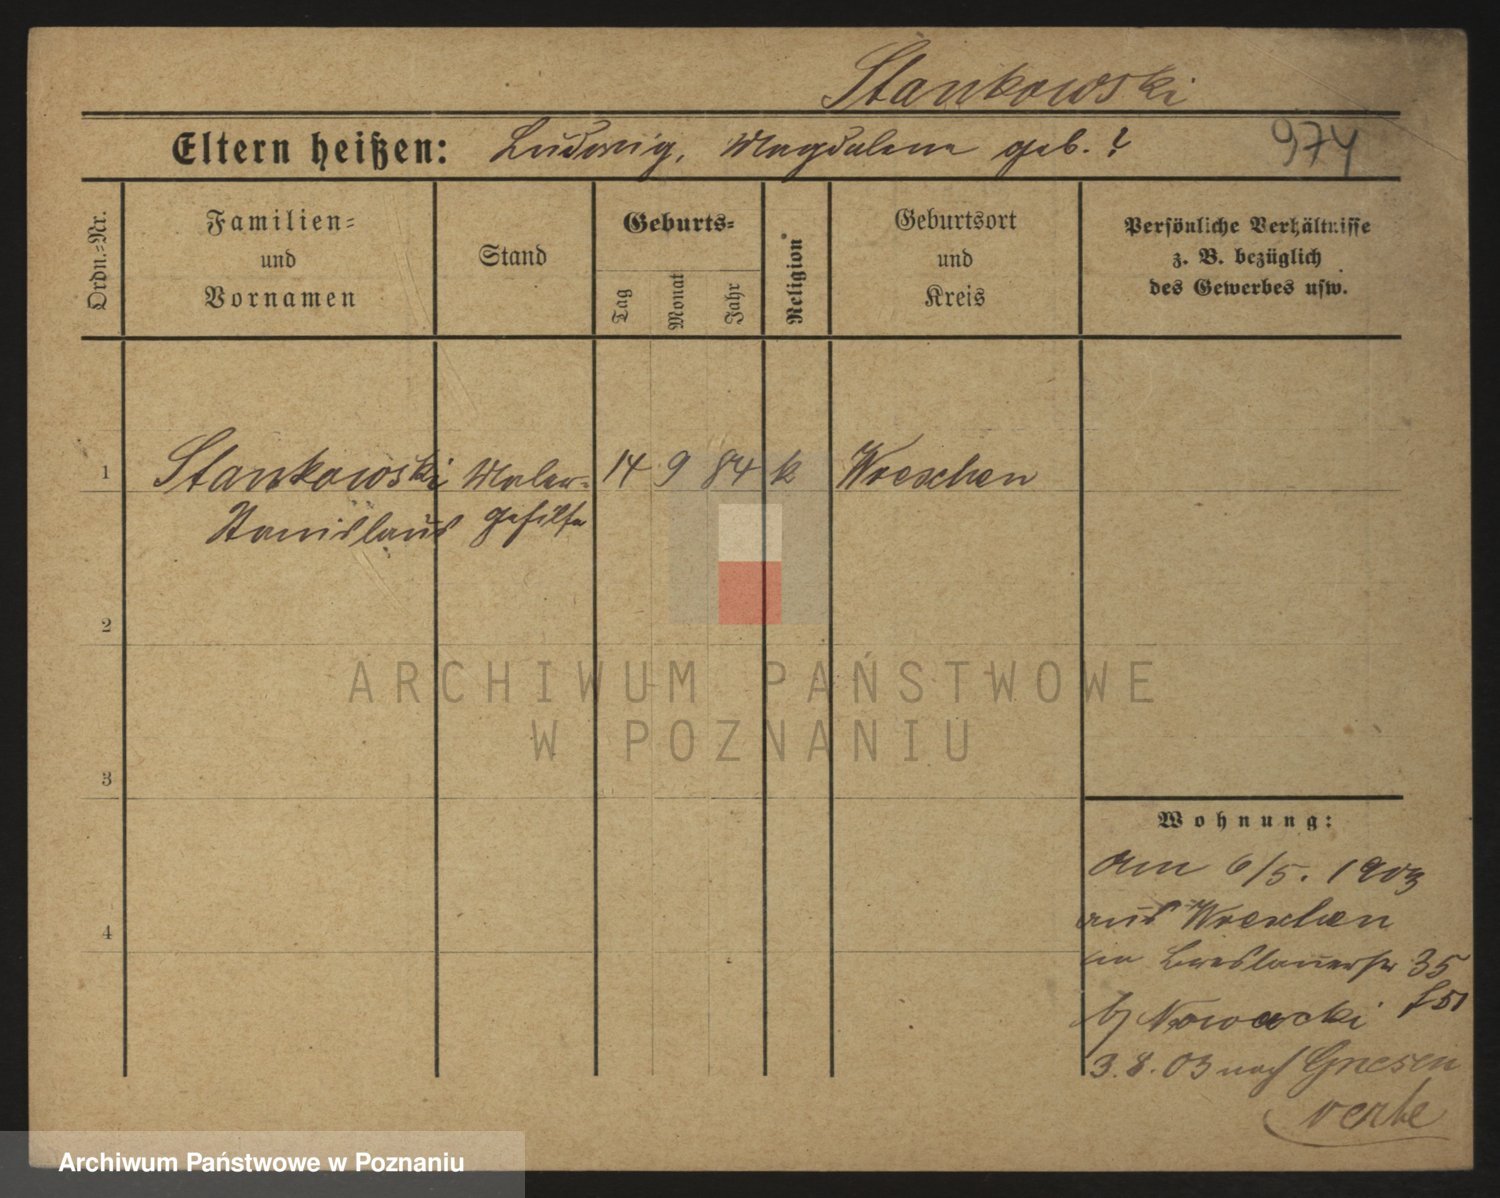 Stankowski
Eltern heißen: Ludwig, Magdalena geb. ? 974
Ordn.-Nr.
Familien-
und
Vornamen
Stand
Geburts-
Tag
Monat
Jahr
Religion
Geburtsort
und
Kreis
Persönliche Verhältnisse
z. B. bezüglich
des Gewerbes usw.
1 Stankowski Maler- 14 9 84 k Wreschen
Stanislaus gehilfe
2
ARCHIWUM PAŃSTWOWE
W POZNANIU
3
Wohnung:
am 6/5. 1903
4 aus Wreschen
Breslauerstr 35
b/ Nowacki
3.8.03 nach Gnesen
Archiwum Państwowe w Poznaniu